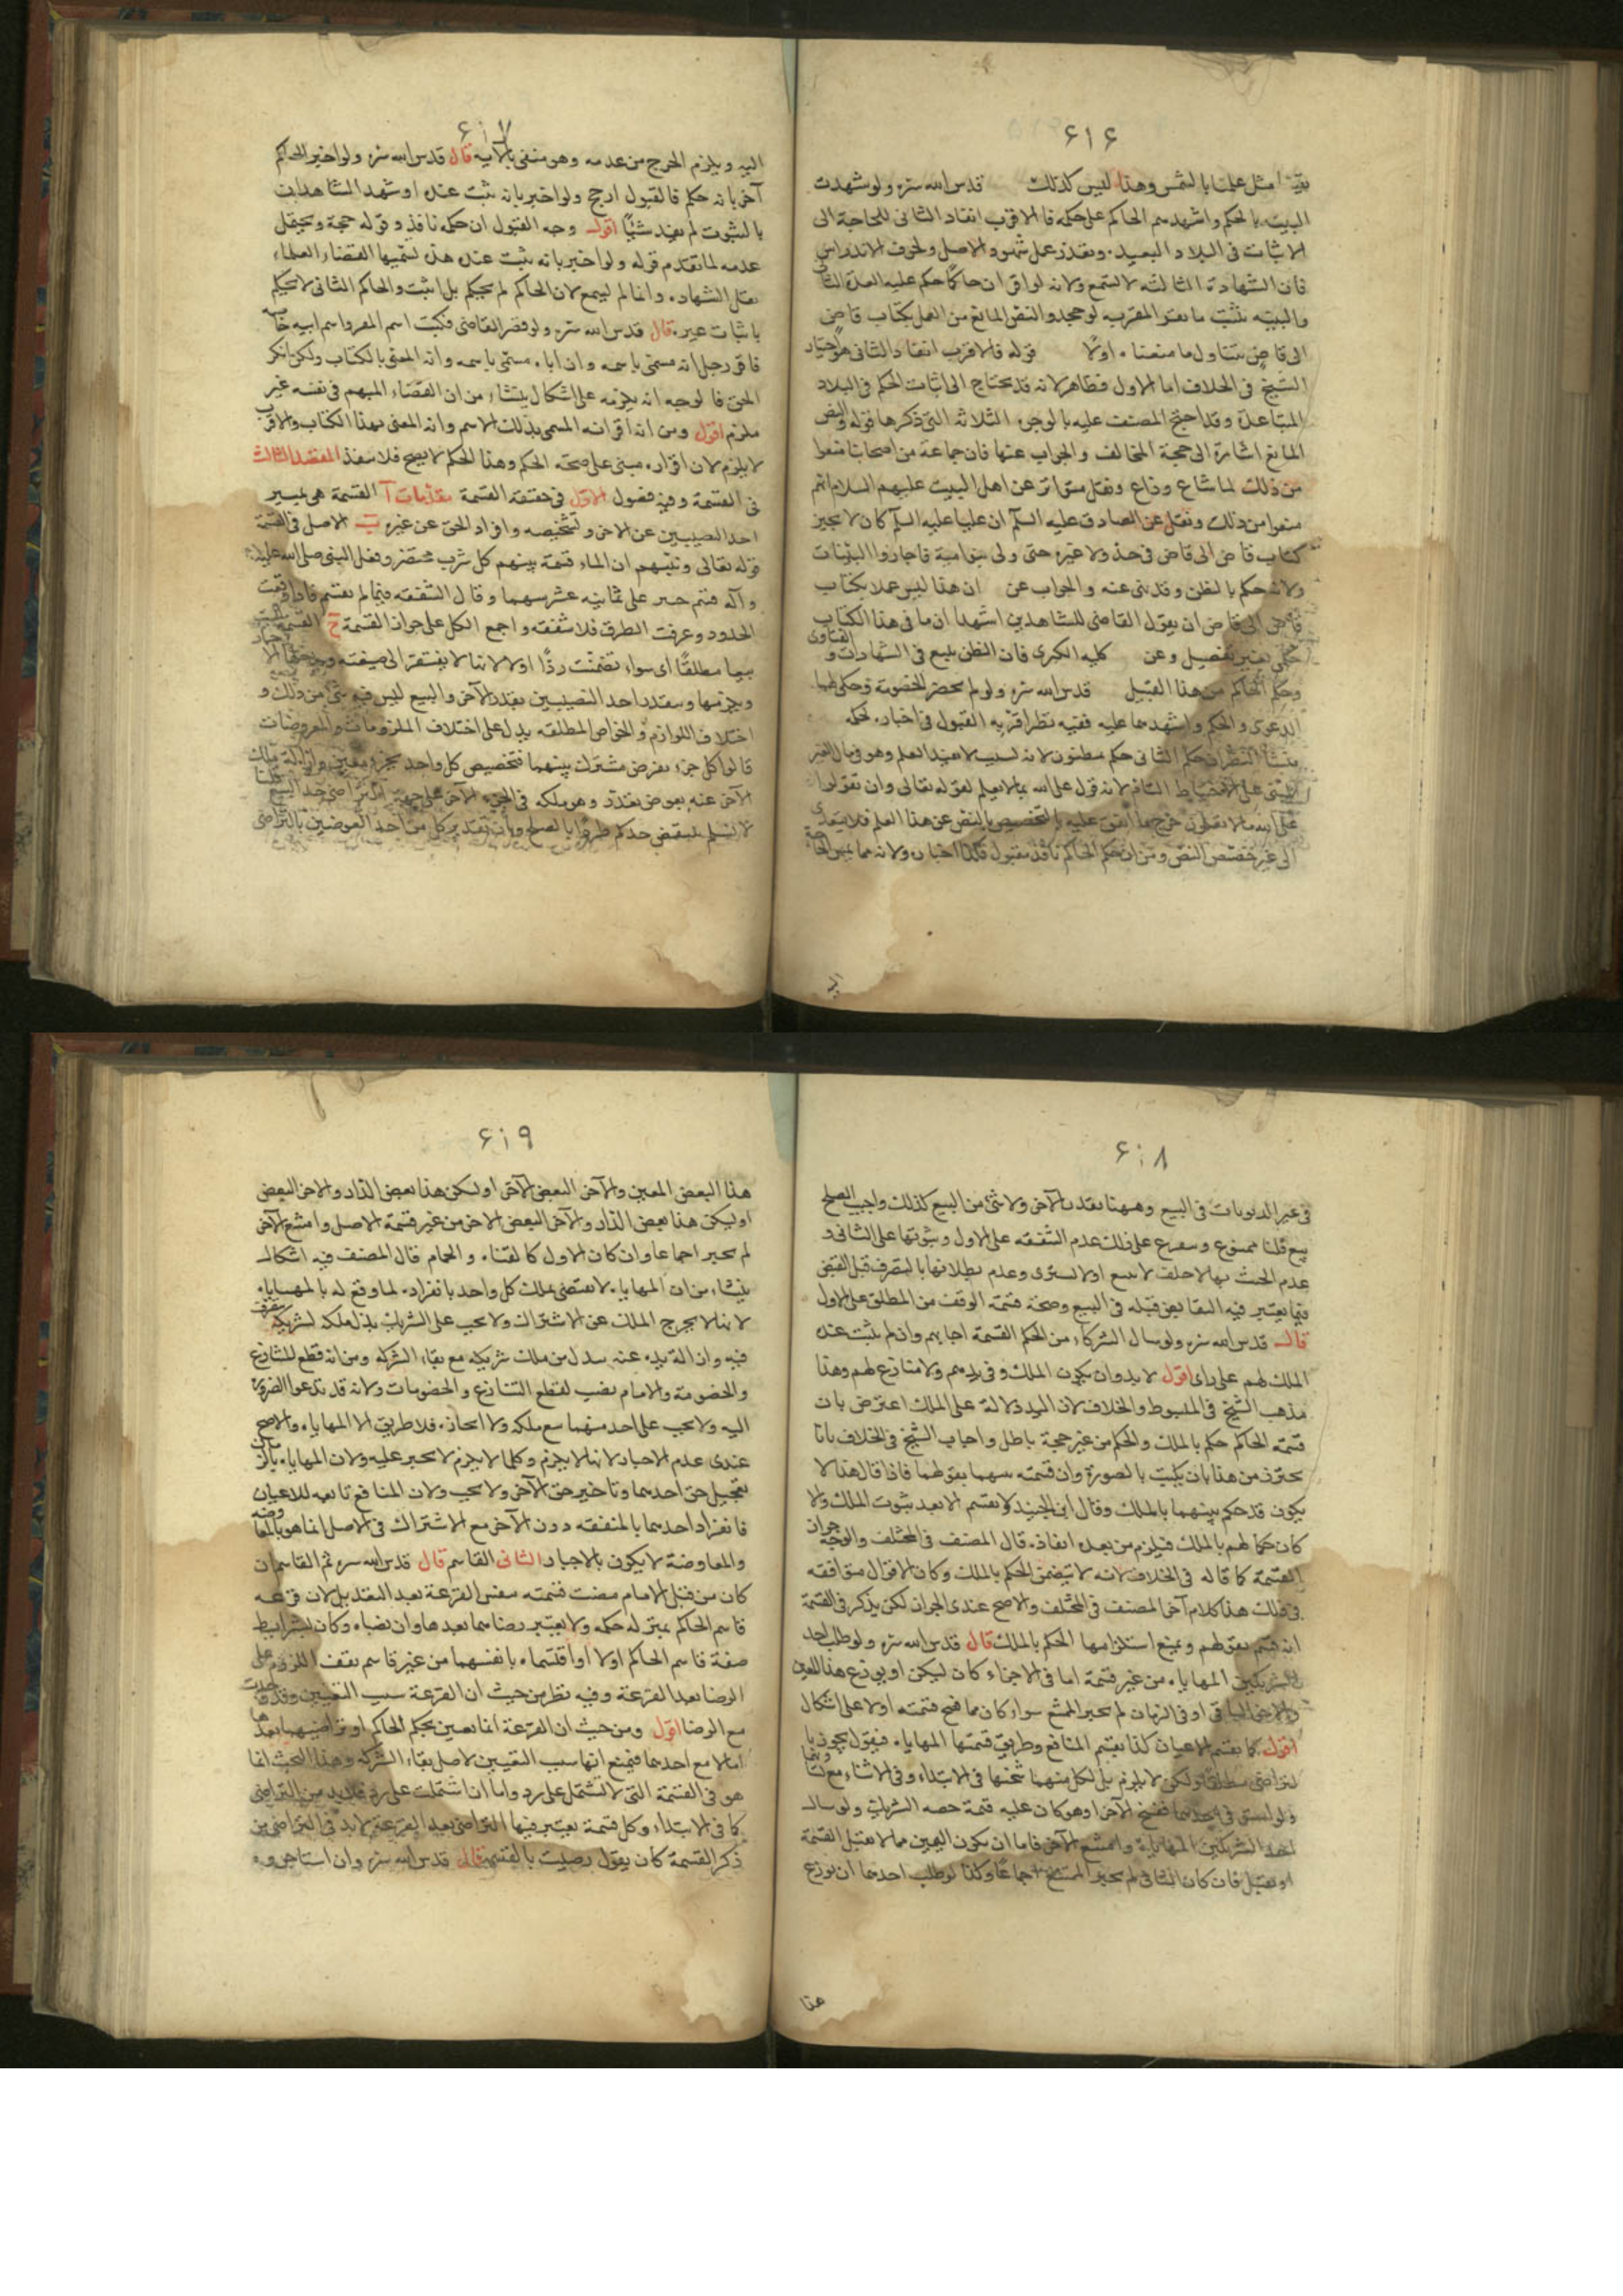 ٤١٤
مثل علمنا بالشمس وهذا ليس كذلك قدس الله سره ولو شهدت
البينة بالحكم واشهدهم الحاكم على حكمه فالاقرب انفاذ الثانى للحاجة الى
الاثبات فى البلاد البعيدة وتعذر عمل شهود الاصل ولخوف الاندراس
فان الشهادة الثالثة لا تسمع ولانه لو اقر ان حاكما حكم عليه انفذه الثانى
والبينة تثبت ما يقر المقر به لو جحد والنص المانع من العمل بكتاب قاض
الى قاض يتناول ما منعناه اولا قوله فالاقرب انفاذ الثانى هو اختيار
الشيخ فى الخلاف اما الاول فظاهر لانه قد يحتاج الى اثبات الحكم فى البلاد
المتباعدة وقد احتج المصنف عليه بالوجوه الثلاثة التى ذكرها قوله والنص
المانع اشارة الى حجة المخالف والجواب عنها فان جماعة من اصحابنا منعوا
من ذلك لما شاع وذاع ونقل متواتر عن اهل البيت عليهم السلام انهم
منعوا من ذلك ونقل عن الصادق عليه السلم ان عليا عليه السلم كان لا يجيز
كتاب قاض الى قاض فى حد ولا غيره حتى ولى بنو امية فاجازوا بالبينات
ولانه حكم بالظن وقد نهى عنه والجواب عن ان هذا ليس عملا بكتاب
قاض الى قاض ان يقول القاضى للشاهدين اشهدا ان ما فى هذا الكتاب
حكمى بغير تفصيل وعن كلية الكبرى فان الظن يتبع فى الشهادات والفتاوى
وحكم الحاكم من هذا القبيل قدس الله سره ولو لم يحضر الخصومة فحكى لهما
الدعوى والحكم واشهدهما عليه ففيه نظر اقربه القبول فى اخباره لحكمه
ينشأ النظر ان حكم الثانى حكم مظنون لانه لا يفيد العلم وهو فى مال الغير
المبنى على الاحتياط التام لانه قول على الله بما لا يعلم لقوله تعالى وان تقولوا
على الله ما لا تعلمون خرج ما اتفق عليه بالتخصيص بالنص عن هذا العلم فلا يتعدى
الى غير مخصص النص ومن ان حكم الحاكم نافذ مقبول فكذا اخباره ولانه مما يمس الحاجة
٤١٧
اليه ويلزم الحرج من عدمه وهو منفى بالآية قال قدس الله سره ولو اخبر الحاكم
آخر بانه حكم فالقبول ارجح ولو اخبر بانه ثبت عنده او شهد الشاهدان
بالثبوت لم يفد شيئا اقول وجه القبول ان حكمه نافذ وقوله حجة ويحتمل
عدمه لما تقدم قوله ولو اخبر بانه ثبت عنده هذا يسميها القضاة والعلماء
نقل الشهادة وانما لم يسمع لان الحاكم لم يحكم بل اثبت والحاكم الثانى لا يحكم
باثبات غيره قال قدس الله سره ولو قصر القاضى فكتب اسم المقر واسم ابيه خاصة
فاقر رجل انه مسمى باسمه وان اباه مسمى باسمه وانه المعنى بالكتاب ولكن انكر
الحق فالوجه انه يلزمه على اشكال ينشأ من ان القضاء المبهم فى نفسه غير
ملزم اقول ومن انه اقر انه المسمى بذلك الاسم وانه المعنى بهذا الكتاب والاقرب
لا يلزم لان اقراره مبنى على صحة الحكم وهذا الحكم لا يصح فلا ينفذ المقصد الثالث
فى القسمة وفيه فصول الاول فى حقيقة القسمة مقدمات آ القسمة هى تميير
احد النصيبين عن الاخر وتشخيصه وافراد الحق عن غيره ب الاصل فى القسمة
قوله تعالى ونبئهم ان الماء قسمة بينهم كل شرب محتضر وفعل النبى صلى الله عليه
وآله قسم خيبر على ثمانية عشر سهما وقال الشفعة فيما لم يقسم فاذا وقعت
الحدود وعرفت الطرق فلا شفعة واجمع الكل على جواز القسمة ج القسمة ليست
بيعا مطلقا اى سواء تضمنت ردا او لا لانها لا يفتقر الى صيغته
ويتقدر احد النصيبين بقدر الآخر والبيع ليس فيه شئ من ذلك و
اختلاف اللوازم والخواص المطلقة يدل على اختلاف الملزومات والمعروضات
قالوا كل جزء يفرض مشترك بينهما فتخصيص كل واحد بجزء معين وازالة ملك
الآخر عنه بعوض مقدر وهو ملكه فى الجزء الآخر على جهة التراضى حد البيع قلنا
لا نسلم
٤١٨
فى غير الربويات فى البيع وههنا يقدر الآخر ولا شئ من البيع كذلك واجب الصلح
بيع قلنا ممنوع ويتفرع على ذلك عدم الشفعة على الاول وثبوتها على الثانى و
عدم الحنث بها لا حلف لا يبيع او لا يشترى وعدم بطلانها بالتصرف قبل القبض
فيما يعتبر فيه التقابض قبله فى البيع وصحة قسمة الوقف من المطلق على الاول
قال قدس الله سره ولو سال الشركاء من الحكم القسمة اجابهم وان لم يثبت عنده
الملك لهم على راى اقول لا بد وان يكون الملك فى يدهم ولا منازع لهم وهذا
مذهب الشيخ فى المبسوط والخلاف لان اليد دلالة على الملك اعترض بان
قسمة الحاكم حكم بالملك والحكم من غير حجة باطل واجاب الشيخ فى الخلاف بانا
نحترز من هذا بان يكتب بالصورة وان قسمته بينهما بقولهما فاذا قال هذا لا
يكون قد حكم بينهما بالملك وقال ابن الجنيد لا يقسم الا بعد ثبوت الملك والا
كان حكما لهم بالملك فيلزم من بعده انفاذه قال المصنف فى المختلف والوجه جواز
القسمة كما قاله فى الخلاف لانه لا يتضمن الحكم بالملك وكان الاقوال موافقة
فى ذلك هذا كلام آخر المصنف فى المختلف والاصح عندى الجواز لكن يذكر فى القسمة
انه قسم بقولهم ويمنع استلزامها الحكم بالملك قال قدس الله سره ولو طلب احد
الشريكين المهاياة من غير قسمة اما فى الاجزاء كان يسكن او يزرع هذا المعين
والآخر الباقى او فى الزمان لم يجبر الممتنع سواء كان مما تصح قسمته او لا على اشكال
اقول كما يقسم الاعيان كذا يقسم المنافع وطريق قسمتها المهاياة فنقول يجوز با
لتراضى مطلقا ولكن لا يلزم بل لكل منهما فسخها فى الابتداء وفى الاثناء
ولو استوفى احدهما ففسخ الآخر او هو كان عليه قيمة حصة الشريك ولو سال
احد الشريكين المهاياة وامتنع الآخر فاما ان يكون العين مما لا يقبل القسمة
او يقبل فان كان الثانى لم يجبر الممتنع اجماعا وكذا لو طلب احدهما ان يوزع
هذا
٤١٩
هذا البعض المعين والآخر البعض الآخر او يسكن هذا بعض الدار والآخر البعض
او يسكن هذا بعض الدار والآخر البعض الآخر من غير قسمة الاصل وامتنع الآخر
لم يجبر اجماعا وان كان الاول كالقناة والحمام قال المصنف فيه اشكال
ينشأ من ان المهاياة لا يقتضى تملك كل واحد بانفراده لما وقع له بالمهاياة
لانها لا يخرج الملك عن الاشتراك ولا يجب على الشريك بذل ملكه لشريكه يتصرف
فيه وازالة يده عنه ببدل من ملك شريكه مع بقاء الشركة ومن انه قطع للتنازع
والخصومة والامام نصب لقطع التنازع والخصومات ولانه قد تدعوا الضرورة
اليه ولا يجب على احد منهما بيع ملكه ولا ايجاره فلا طريق الا المهاياة والاصح
عندى عدم الاجبار لانها لا يلزم وكلما لا يلزم لا يجبر عليه ولان المهاياة
تعجيل حق احدهما وتاخير حق الآخر ولا يجب ولان المنافع تابعة للاعيان
فانفراد احدهما بالمنفعة دون الآخر مع الاشتراك فى الاصل انما هو بالمعاوضة
والمعاوضة لا يكون بالاجبار الثانى القاسم قال قدس الله سره ثم القاسم ان
كان من قبل الامام مضت قسمته بنفس القرعة بعد التعديل لان قرعة
قاسم الحاكم بمنزلة حكمه ولا يعتبر رضاهما بعدها وان نصباه وكان بشرايط
صفة قاسم الحاكم او لا او اقتسماه بانفسهما من غير قاسم يقف اللزوم على
الرضا بعد القرعة وفيه نظر من حيث ان القرعة سبب التعيين وقد قارنت
مع الرضا اقول ومن حيث ان القرعة انما يعين بحكم الحاكم او تراضيهما بعدها
اما لا مع احدهما فيمنع انها سبب التعيين لاصل بقاء الشركة وهذا البحث انما
هو فى القسمة التى لا تشتمل على رد واما ان اشتملت على رد فلابد من التراضى
كما فى الابتداء وكل قسمة يعتبر فيها التراضى بعد القرعة لابد فى التراضى من
ذكر القسمة كان يقول رضيت بالقسمة قال قدس الله سره وان استاجروه